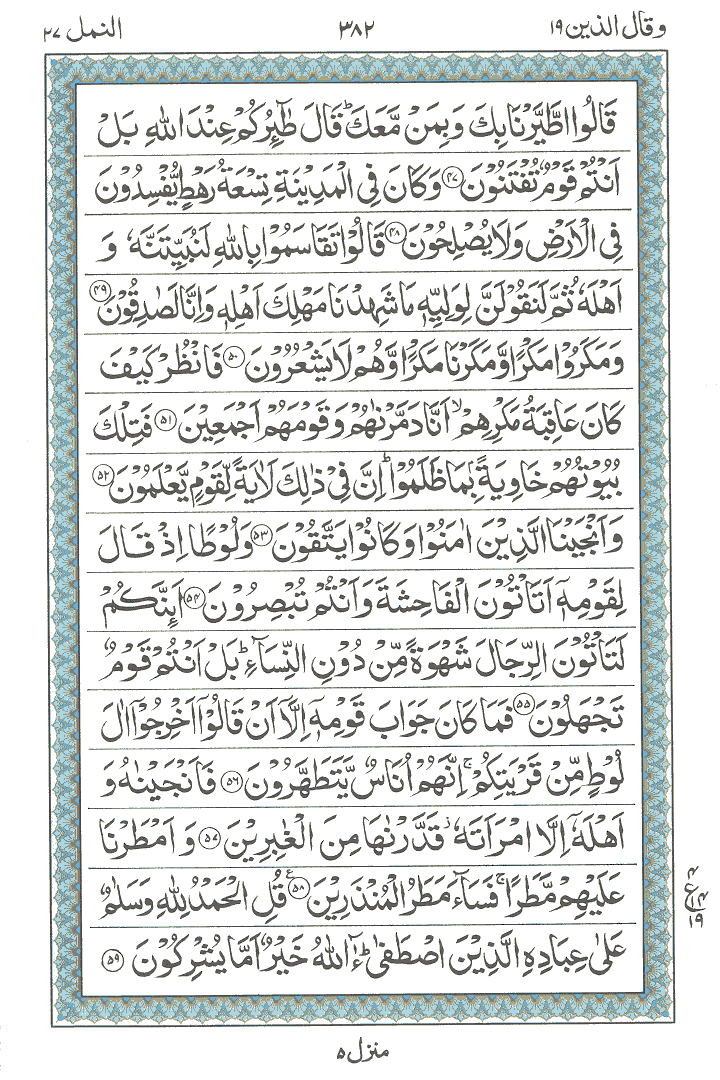 وقال الذين ١٩ ٣٨٢ النمل ٢٧
قَالُوا اطَّيَّرْنَا بِكَ وَبِمَنْ مَّعَكَ ؕ قَالَ طٰٓئِرُكُمْ عِنْدَ اللّٰهِ بَلْ
اَنْتُمْ قَوْمٌ تُفْتَنُوْنَ ﴿۴۷﴾ وَكَانَ فِي الْمَدِيْنَةِ تِسْعَةُ رَهْطٍ يُّفْسِدُوْنَ
فِي الْاَرْضِ وَلَا يُصْلِحُوْنَ ﴿۴۸﴾ قَالُوْا تَقَاسَمُوْا بِاللّٰهِ لَنُبَيِّتَنَّهٗ وَ
اَهْلَهٗ ثُمَّ لَنَقُوْلَنَّ لِوَلِيِّهٖ مَا شَهِدْنَا مَهْلِكَ اَهْلِهٖ وَاِنَّا لَصٰدِقُوْنَ ﴿۴۹﴾
وَمَكَرُوْا مَكْرًا وَّمَكَرْنَا مَكْرًا وَّهُمْ لَا يَشْعُرُوْنَ ﴿۵۰﴾ فَانْظُرْ كَيْفَ
كَانَ عَاقِبَةُ مَكْرِهِمْ ۙ اَنَّا دَمَّرْنٰهُمْ وَقَوْمَهُمْ اَجْمَعِيْنَ ﴿۵۱﴾ فَتِلْكَ
بُيُوْتُهُمْ خَاوِيَةًۢ بِمَا ظَلَمُوْا ؕ اِنَّ فِيْ ذٰلِكَ لَاٰيَةً لِّقَوْمٍ يَّعْلَمُوْنَ ﴿۵۲﴾
وَاَنْجَيْنَا الَّذِيْنَ اٰمَنُوْا وَكَانُوْا يَتَّقُوْنَ ﴿۵۳﴾ وَلُوْطًا اِذْ قَالَ
لِقَوْمِهٖٓ اَتَاْتُوْنَ الْفَاحِشَةَ وَاَنْتُمْ تُبْصِرُوْنَ ﴿۵۴﴾ اَئِنَّكُمْ
لَتَاْتُوْنَ الرِّجَالَ شَهْوَةً مِّنْ دُوْنِ النِّسَآءِ ؕ بَلْ اَنْتُمْ قَوْمٌ
تَجْهَلُوْنَ ﴿۵۵﴾ فَمَا كَانَ جَوَابَ قَوْمِهٖٓ اِلَّآ اَنْ قَالُوْٓا اَخْرِجُوْٓا اٰلَ
لُوْطٍ مِّنْ قَرْيَتِكُمْ ۚ اِنَّهُمْ اُنَاسٌ يَّتَطَهَّرُوْنَ ﴿۵۶﴾ فَاَنْجَيْنٰهُ وَ
اَهْلَهٗٓ اِلَّا امْرَاَتَهٗ ؗ قَدَّرْنٰهَا مِنَ الْغٰبِرِيْنَ ﴿۵۷﴾ وَاَمْطَرْنَا
عَلَيْهِمْ مَّطَرًا ۚ فَسَآءَ مَطَرُ الْمُنْذَرِيْنَ ﴿۵۸﴾ ع قُلِ الْحَمْدُ لِلّٰهِ وَسَلٰمٌ
۴
ع ۱۴
۱۹
عَلٰى عِبَادِهِ الَّذِيْنَ اصْطَفٰى ؕ ءٰٓاللّٰهُ خَيْرٌ اَمَّا يُشْرِكُوْنَ ﴿۵۹﴾
منزل ۵